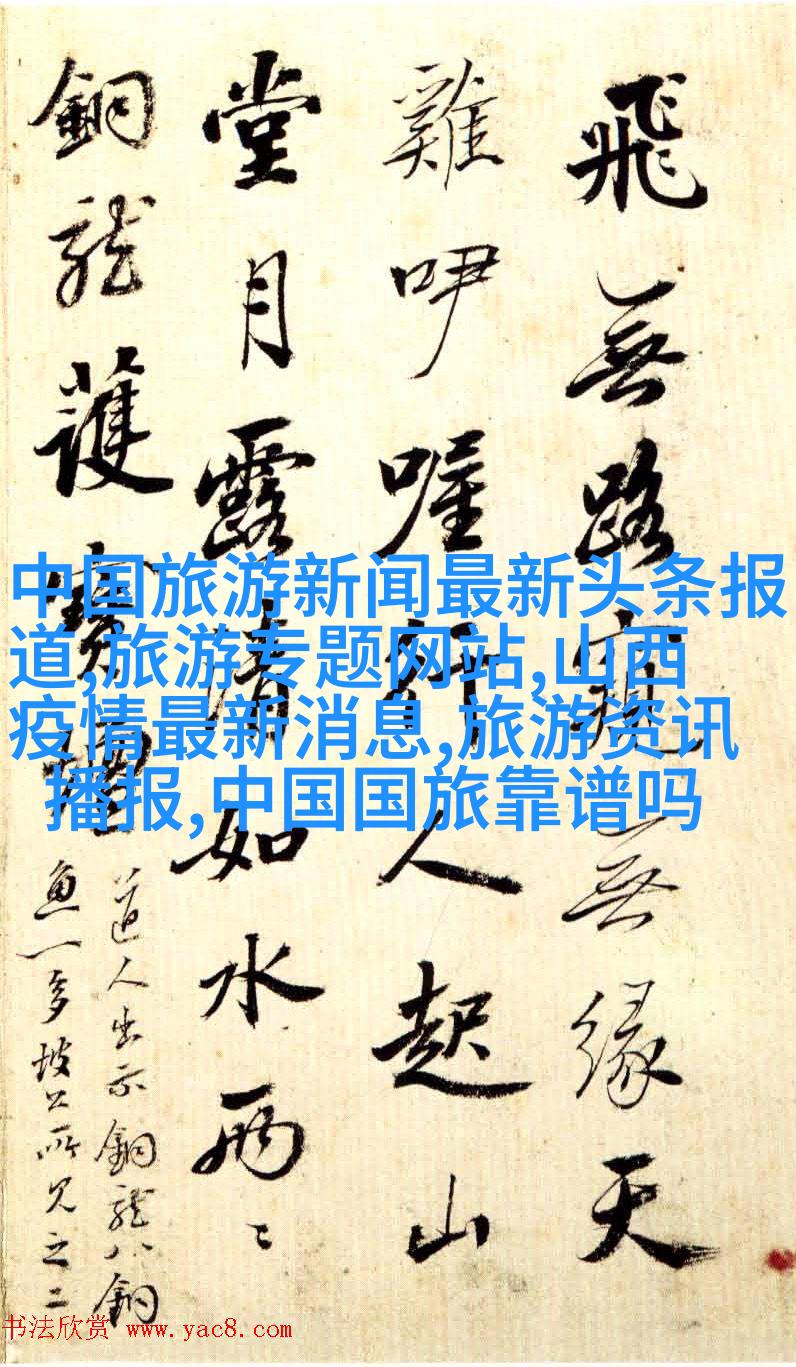 飛無路無緣天
雞吚喔行人起山
堂月露清如水兩〻
銅龍護寶
道人出示銅龍八銅
魚一多坡公所見之二
中国旅游新闻最新头条报
道,旅游专题网站,山西
疫情最新消息,旅游资讯
播报,中国国旅靠谱吗
书法欣赏 www.yac8.com